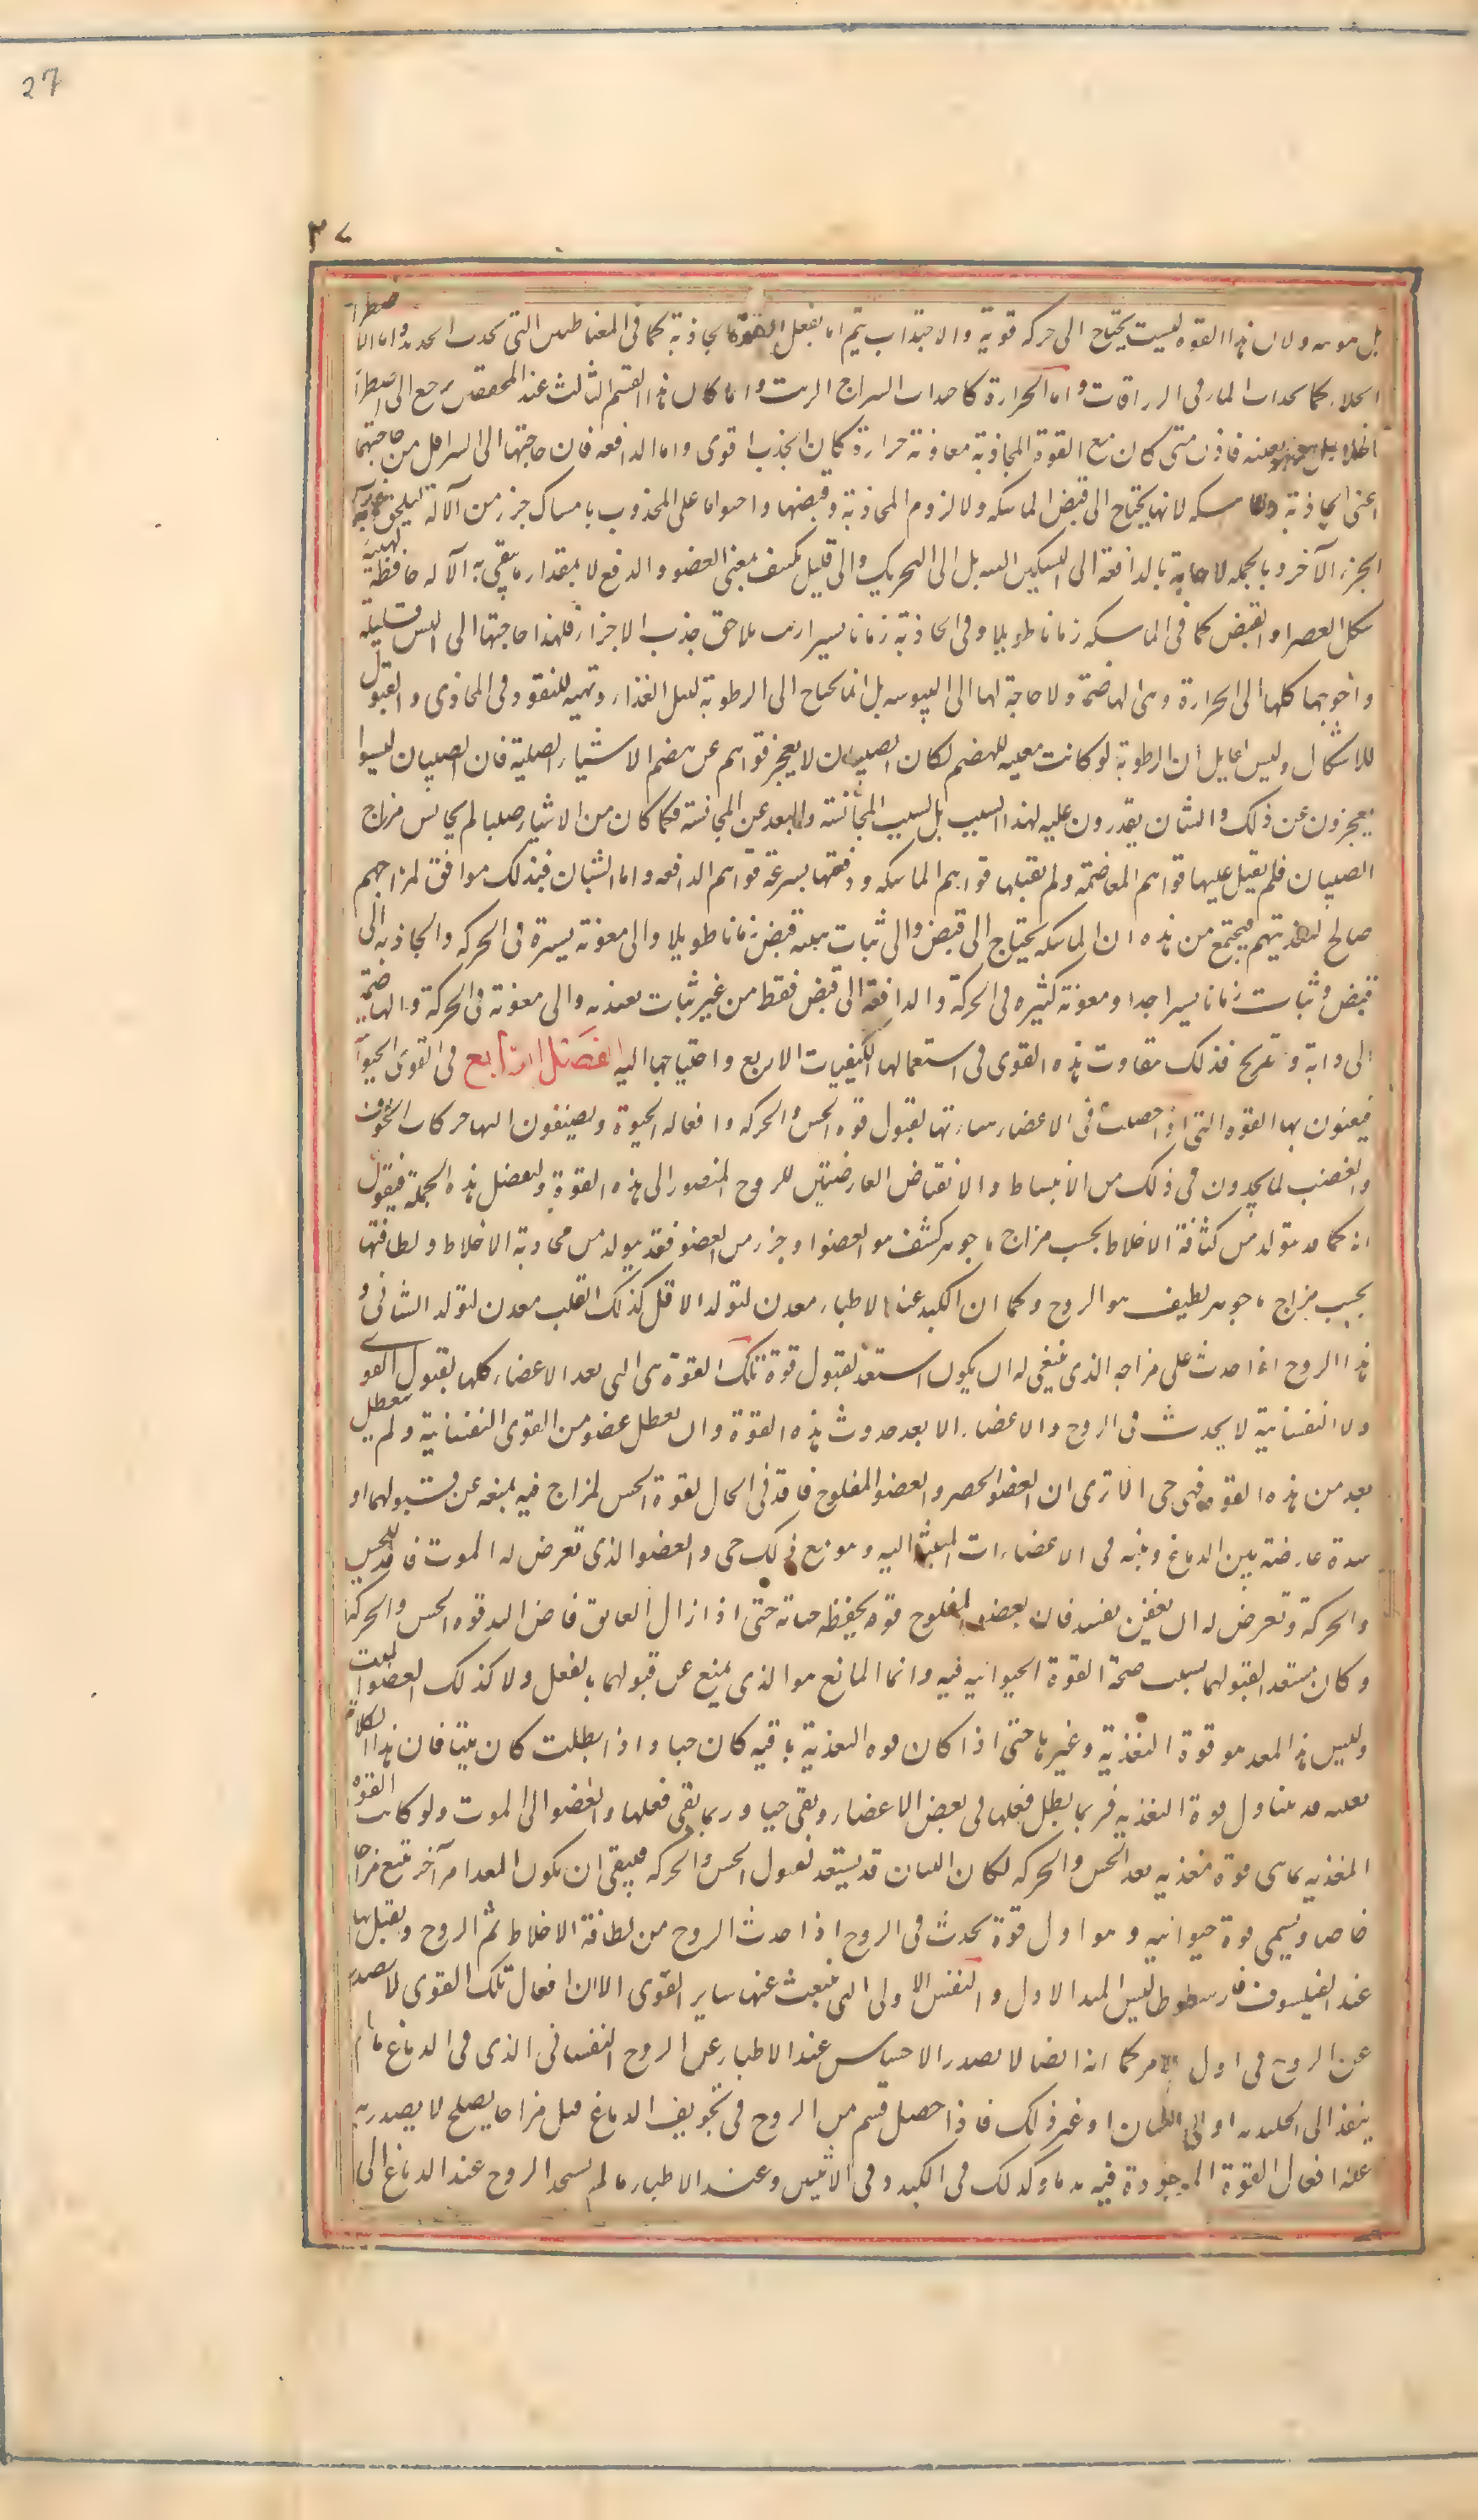 27
٢٧
بل موسه ولان هذا القوه ليست يحتاج الى حركه قوية والاجتذاب يتم اما بفعل القوة الجاذبة كما فى المغناطيس التى بجذب الحديد واما الاضطرار
الخلاء كما بجذاب الماء فى الزراقات واما الحرارة كاجذاب السراج الزيت واما كان هذا القسم الثالث عند المحققين يرجع الى اضطرار
الخلاء بل هو بعينه فاذن متى كان مع القوة الجاذبة معاونة حرارة كان الجذب اقوى واما الدافعه فان حاجتها الى اليبس اقل من حاجتهما
اعنى الجاذبة والماسكه لانها يحتاج الى قبض الماسكه ولا لزوم الجاذبة وقبضها واحتوائها على المجذوب بامساك جزء من الآلة ليلحق به جذب
الجزء الآخر وبالجمله لا حاجة بالدافعة الى التسكين البته بل الى التحريك والى قليل تكثيف يعين العضو والدفع لا بمقدار ما يبقى به الآله حافظة لهيئة
شكل العصر او القبض كما فى الماسكه زمانا طويلا وفى الجاذبة زمانا يسيرا ريث تلاحق جذب الاجزاء فلهذا حاجتها الى اليبس قليلة
واحوجها كلها الى الحرارة هى الهاضمة ولا حاجة لها الى اليبوسه بل انما يحتاج الى الرطوبة لتسيل الغذاء وتهيه للنفوذ فى المجارى والقبول
للاشكال وليس لقايل ان الرطوبة لو كانت معينه للهضم لكان الصبيان لا يعجز قواهم عن هضم الاشياء الصلبة فان الصبيان ليسوا
يعجزون عن ذلك والشبان يقدرون عليه لهذا السبب بل لسبب المجانسة والبعد عن المجانسة فما كان من الاشياء صلبا لم يجانس مزاج
الصبيان فلم يقبل عليها قواهم الهاضمة ولم يقبلها قواهم الماسكه ودفعتها بسرعة قواهم الدافعه واما الشبان فبذلك موافق لمزاجهم
صالح لتغذيتهم فيجتمع من هذه ان الماسكه يحتاج الى قبض والى ثبات هيئه قبض زمانا طويلا والى معونة يسيرة فى الحركه والجاذبه الى
قبض وثبات زمانا يسيرا جدا ومعونة كثيره فى الحركة والدافعة الى قبض فقط من غير ثبات يعتد به والى معونة فى الحركة والهاضمة
الى اذابة وتمزيج فذلك متفاوت هذه القوى فى استعمالها الكيفيات الاربع واحتياجها اليه الفصل الرابع فى القوى الحيوانية
فيعنون بها القوه التى اذا حصلت فى الاعضاء هيأتها لقبول قوه الحس والحركه وافعال الحيوة ويضيفون اليها حركات الخوف
والغضب لما يجدون فى ذلك من الانبساط والانقباض العارضتين للروح المنصور الى هذه القوة ولنفصل هذه الجملة فيقول
انه كما قد يتولد من كثافة الاخلاط بحسب مزاج ما جوهر كثيف هو العضو او جزء من العضو فقد يتولد من بخارية الاخلاط ولطافتها
بحسب مزاج ما جوهر لطيف هو الروح وكما ان الكبد عند الاطباء معدن لتولد الاول كذلك القلب معدن لتولد الثانى و
هذا الروح اذا حدث على مزاجه الذى ينبغى له ان يكون استعد لقبول قوة تلك القوة هى التى يعد الاعضاء كلها لقبول القوى
ولا النفسانية لا يحدث فى الروح والاعضاء الا بعد حدوث هذه القوة وان تعطل عضو من القوى النفسانية ولم يتعطل
بعد من هذه القوه فهو حى الا ترى ان العضو الخدر والعضو المفلوج فاقد فى الحال لقوة الحس لمزاج فيه يمنعه عن قبولهما او
سدة عارضة بين الدماغ وبينه فى الاعضاء المنبثة اليه وهو مع ذلك حى والعضو الذى تعرض له الموت فاقد للحس
والحركة وتعرض له ان يعفن يفسد فان بعضو المفلوج قوة يحفظ حياته حتى اذا زال العايق فاض اليه قوه الحس والحركة
وكان مستعدا لقبولهما بسبب صحة القوة الحيوانيه فيه وانما المانع هو الذى يمنع عن قبولهما بالفعل ولا كذلك العضو الميت
وليس هذا المعد هو قوة التغذية وغيرها حتى اذا كان قوه التغذية باقيه كان حيا واذا بطلت كان ميتا فان هذا الكلام
بعينه قد يتناول قوة التغذيه فربما بطل فعلها فى بعض الاعضاء وبقى حيا وربما بقى فعلها والعضو الى الموت ولو كانت القوه
المغذيه بما هى قوة مغذيه يعد الحس والحركه لكان النبات قد يستعد لقبول الحس والحركه فيبقى ان يكون المعد امر آخر يتبع مزاجا
خاصا ويسمى قوة حيوانيه وهو اول قوة يحدث فى الروح اذا حدث الروح من لطافة الاخلاط ثم الروح ويقبل بها
عند الفيلسوف ارسطوطاليس المبدأ الاول والنفس الاولى التى ينبعث عنها ساير القوى الا ان افعال تلك القوى لا يصدر
عن الروح فى اول الامر كما انه ايضا لا يصدر الاحساس عند الاطباء عن الروح النفسانى الذى فى الدماغ ما لم
ينفذ الى الجليديه او الى اللسان او غير ذلك فاذا حصل قسم من الروح فى تجويف الدماغ قبل مزاجا يصلح لا يصدر به
عنه افعال القوة الموجودة فيه بدءا وكذلك فى الكبد وفى الانثيين وعند الاطباء ما لم يستحل الروح عند الدماغ الى